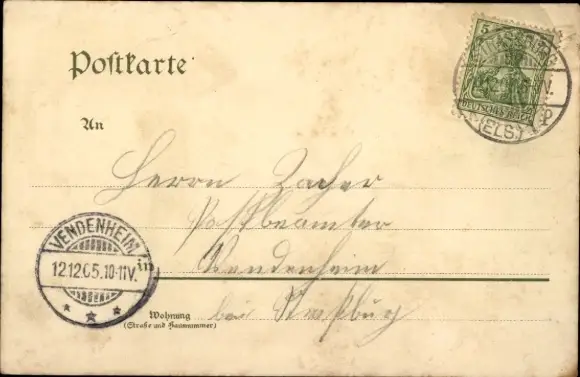 Postkarte
5
DEUTSCHES REICH
(ELS.)
An
Herrn Zacher
Postbeamter
in Vendenheim
bei Straßburg
VENDENHEIM
12.12.05.10-11V.
Wohnung
(Straße und Hausnummer)